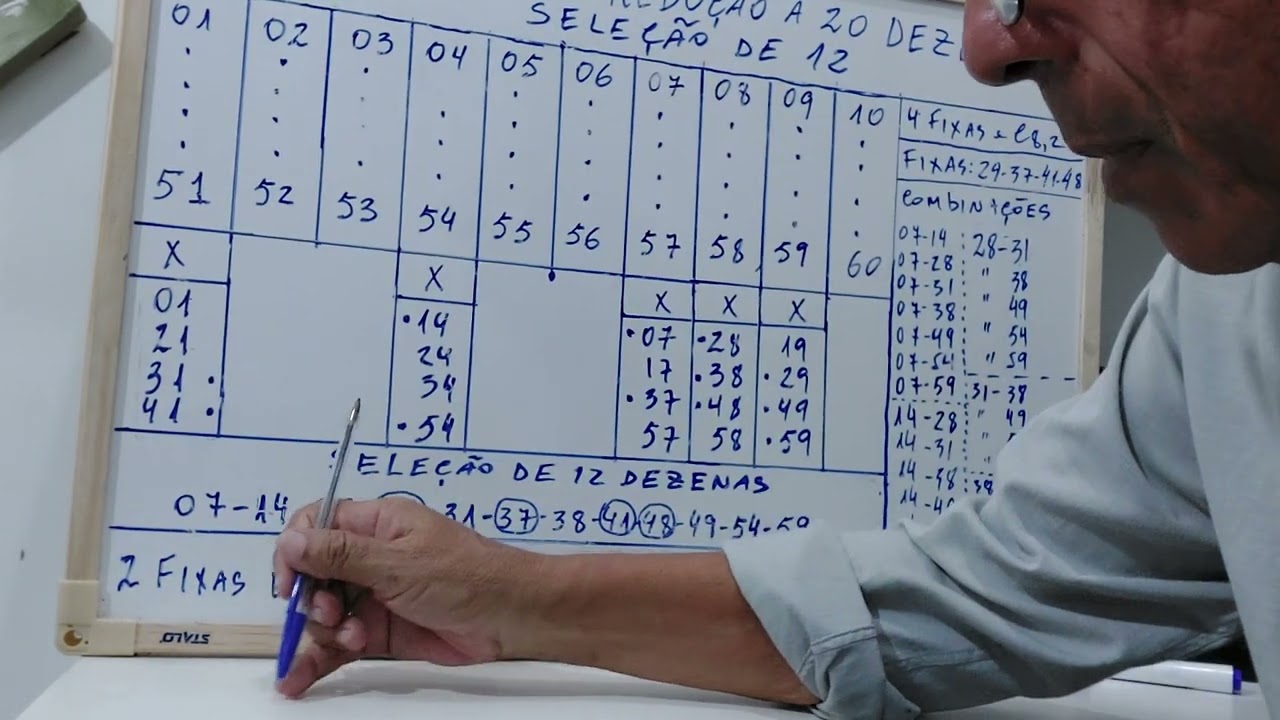 REDUÇÃO A 20
SELEÇÃO DE 12
01 02 03 04 05 06 07 08 09 10
51 52 53 54 55 56 57 58 59 60
X X X X X
01 14 07 28 19
21 24 17 38 29
31 34 37 48 49
41 54 57 58 59
4 FIXAS
FIXAS: 29-37-41-48
COMBINAÇÕES
07-14 28-31
07-28 " 38
07-31 " 49
07-38 " 54
07-49 " 59
07-54
07-59 31-38
14-28 " 49
14-31 "
14-38 38
14-49
SELEÇÃO DE 12 DEZENAS
07-14 31-37-38-41-48-49-54-59
2 FIXAS
STALO